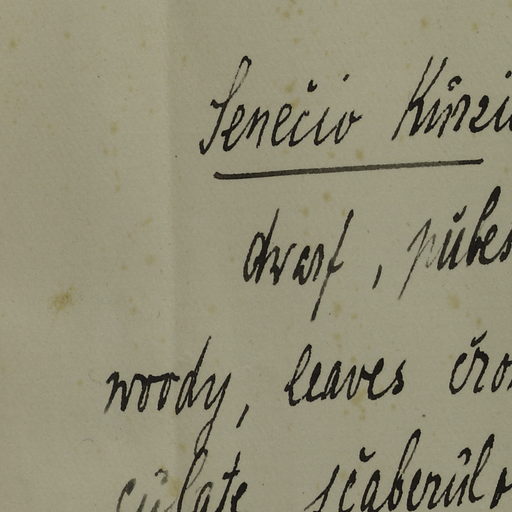 Senecio
dwarf, pubes
woody, leaves cro
culate scaberulo